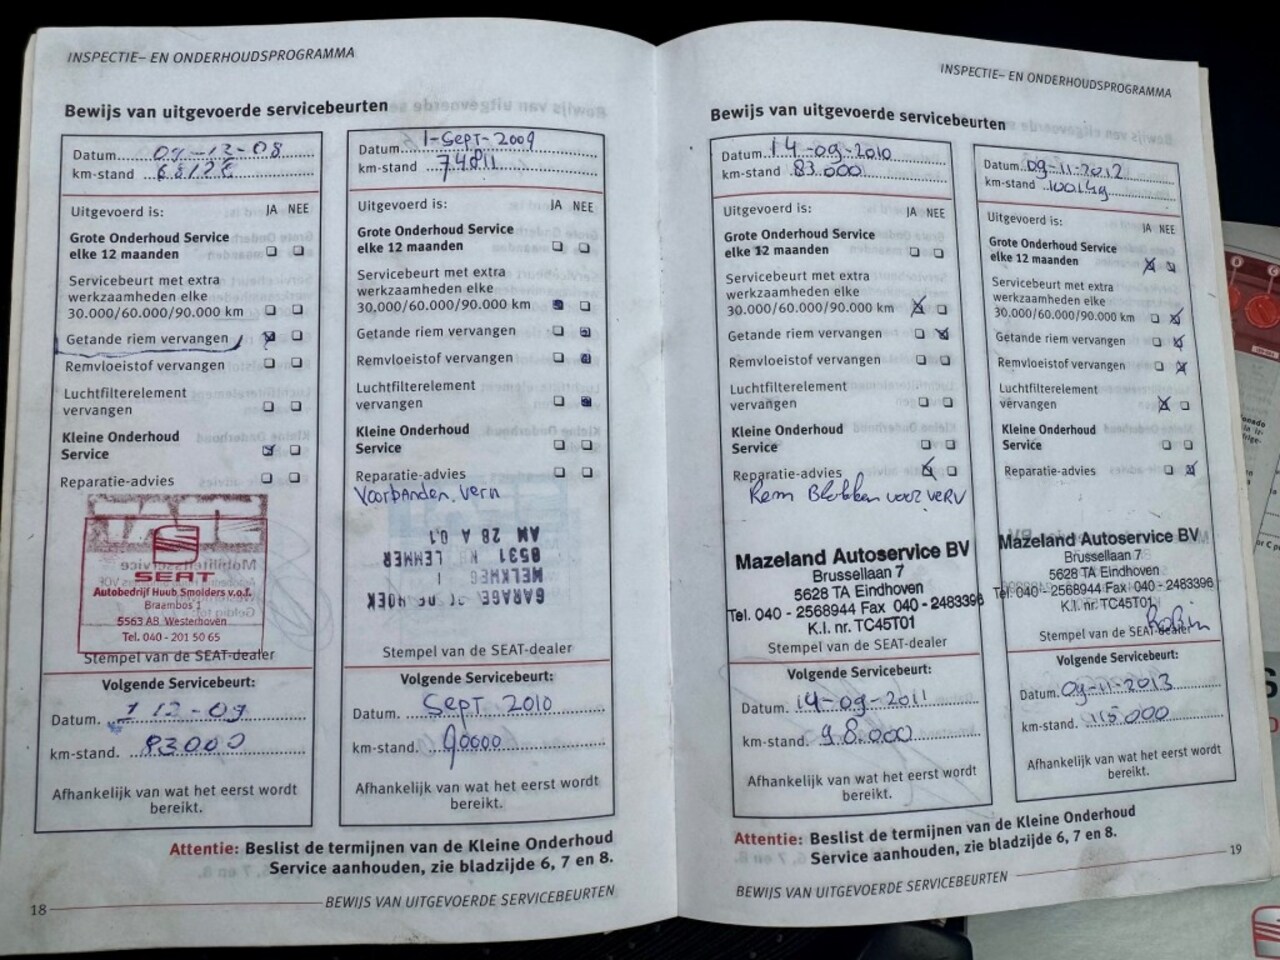 INSPECTIE- EN ONDERHOUDSPROGRAMMA
Bewijs van uitgevoerde servicebeurten
Datum 01-12-08
km-stand
Uitgevoerd is: JA NEE
Grote Onderhoud Service
elke 12 maanden
Servicebeurt met extra
werkzaamheden elke
30.000/60.000/90.000 km
Getande riem vervangen
Remvloeistof vervangen
Luchtfilterelement
vervangen
Kleine Onderhoud
Service
Reparatie-advies
SEAT
Autobedrijf Huub Smolders v.o.f.
Braambos 1
5563 AB Westerhoven
Tel. 040 - 201 50 65
Stempel van de SEAT-dealer
Volgende Servicebeurt:
Datum. 1 12-09
km-stand. 83000
Afhankelijk van wat het eerst wordt
bereikt.
Datum 1-Sept-2009
km-stand 74811
Uitgevoerd is: JA NEE
Grote Onderhoud Service
elke 12 maanden
Servicebeurt met extra
werkzaamheden elke
30.000/60.000/90.000 km
Getande riem vervangen
Remvloeistof vervangen
Luchtfilterelement
vervangen
Kleine Onderhoud
Service
Reparatie-advies
Voorbanden vern
AM 28 A 0.1
8531 LEMMER
MELKWEG 1
GARAGE HOEK
Stempel van de SEAT-dealer
Volgende Servicebeurt:
Datum. Sept 2010
km-stand. 90000
Afhankelijk van wat het eerst wordt
bereikt.
Attentie: Beslist de termijnen van de Kleine Onderhoud
Service aanhouden, zie bladzijde 6, 7 en 8.
18
BEWIJS VAN UITGEVOERDE SERVICEBEURTEN
INSPECTIE- EN ONDERHOUDSPROGRAMMA
Bewijs van uitgevoerde servicebeurten
Datum 14-09-2010
km-stand 83.000
Uitgevoerd is: JA NEE
Grote Onderhoud Service
elke 12 maanden
Servicebeurt met extra
werkzaamheden elke
30.000/60.000/90.000 km
Getande riem vervangen
Remvloeistof vervangen
Luchtfilterelement
vervangen
Kleine Onderhoud
Service
Reparatie-advies
Rem Blokken voor verv
Mazeland Autoservice BV
Brussellaan 7
5628 TA Eindhoven
Tel. 040 - 2568944 Fax 040 - 2483396
K.I. nr. TC45T01
Stempel van de SEAT-dealer
Volgende Servicebeurt:
Datum. 14-09-2011
km-stand. 98.000
Afhankelijk van wat het eerst wordt
bereikt.
Datum 09-11-2012
km-stand
Uitgevoerd is: JA NEE
Grote Onderhoud Service
elke 12 maanden
Servicebeurt met extra
werkzaamheden elke
30.000/60.000/90.000 km
Getande riem vervangen
Remvloeistof vervangen
Luchtfilterelement
vervangen
Kleine Onderhoud
Service
Reparatie-advies
Mazeland Autoservice BV
Brussellaan 7
5628 TA Eindhoven
Tel. 040 - 2568944 Fax 040 - 2483396
K.I. nr. TC45T01
Robin
Stempel van de SEAT-dealer
Volgende Servicebeurt:
Datum. 09-11-2013
km-stand. 115000
Afhankelijk van wat het eerst wordt
bereikt.
Attentie: Beslist de termijnen van de Kleine Onderhoud
Service aanhouden, zie bladzijde 6, 7 en 8.
19
BEWIJS VAN UITGEVOERDE SERVICEBEURTEN